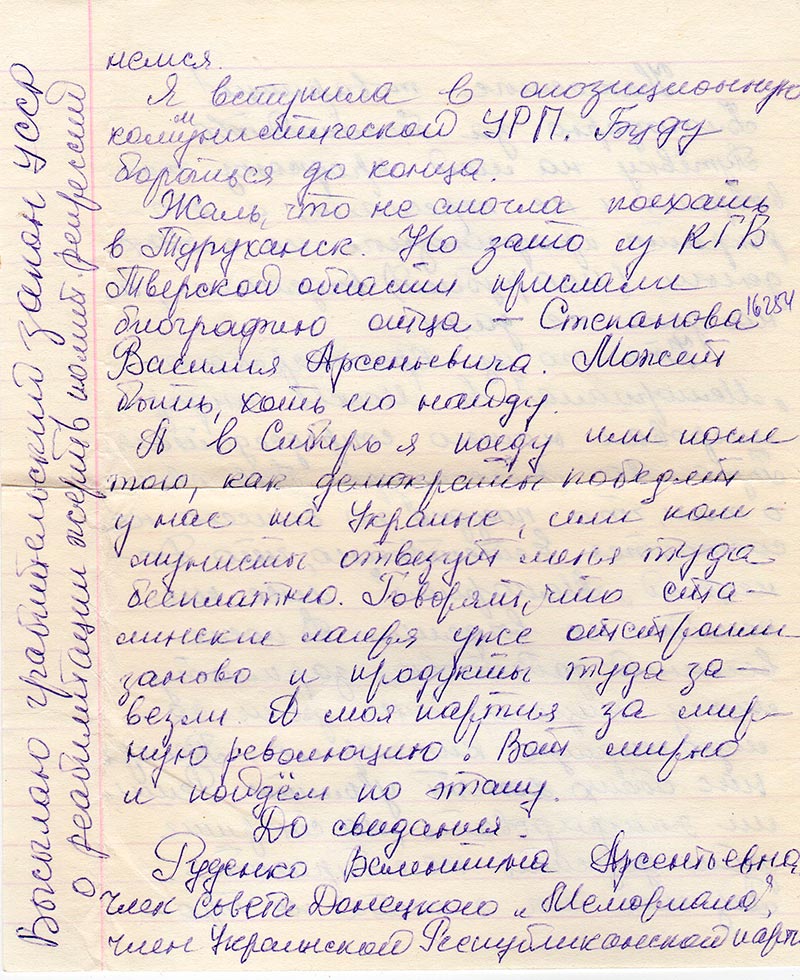 немся.
Я вступила в опозиционную
коммунистической УРП. Буду
бороться до конца.
Жаль, что не смогла поехать
в Туруханск. Но зато из КГБ
Тверской области прислали
биографию отца – Степанова 16254
Василия Арсеньевича. Может
быть, хоть его найду.
А в Сибирь я поеду или после
того, как демократы победят
у нас на Украине, или ком
мунисты отвезут меня туда
бесплатно. Говорят, что ста-
линские лагеря уже отстроили
заново и продукты туда за-
везли. А моя партия за мир-
ную революцию! Вот мирно
и пойдём по этапу.
До свидания!
Руденко Валентина Арсентьевна,
член совета Донецкого „Мемориала",
член Украинской Республиканской парти
Высылаю грабительский закон УССР
о реабилитации жертв полит. репрессий